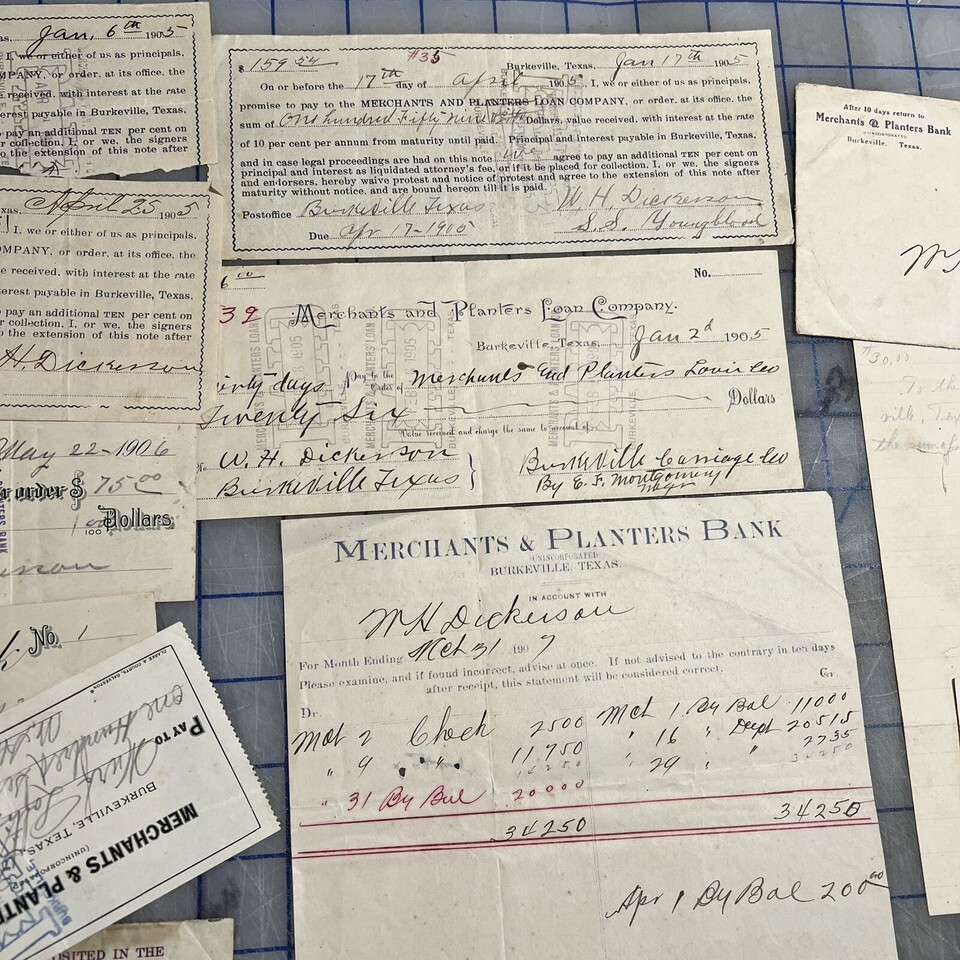 Jan. 6th 1905
I, we or either of us as principals,
COMPANY, or order, at its office, the
received, with interest at the rate
interest payable in Burkeville, Texas.
to pay an additional TEN per cent on
for collection. I, or we, the signers
to the extension of this note after
$ 159 54 #35 Burkeville, Texas, Jan 17th 1905
On or before the 17th day of April 1905, I, we or either of us as principals,
promise to pay to the MERCHANTS AND PLANTERS LOAN COMPANY, or order, at its office, the
sum of One hundred Fifty nine Dollars, value received, with interest at the rate
of 10 per cent per annum from maturity until paid. Principal and interest payable in Burkeville, Texas,
and in case legal proceedings are had on this note We agree to pay an additional TEN per cent on
principal and interest as liquidated attorney's fee, or if it be placed for collection. I, or we, the signers
and endorsers, hereby waive protest and notice of protest and agree to the extension of this note after
maturity without notice, and are bound hereon till it is paid.
Postoffice Burkeville Texas W. H. Dickerson
Due Apr 17-1905 S.S. Youngblood
After 10 days return to
Merchants & Planters Bank
UNINCORPORATED
Burkeville, Texas.
April 25 1905
I, we or either of us as principals,
COMPANY, or order, at its office, the
received, with interest at the rate
interest payable in Burkeville, Texas,
to pay an additional TEN per cent on
or collection. I, or we, the signers
the extension of this note after
H. Dickerson
6 00 No.
39 Merchants and Planters Loan Company.
Burkeville, Texas, Jan 2d 1905
days Pay to the Order of Merchants and Planters Loan Co
Twenty Six Dollars
Value received and charge the same to account of
To W. H. Dickerson Burkeville Carriage Co
Burkeville Texas By E. F. Montgomery
Mgr
$30.00
To the
the sum of
May 22-1906
or order $ 75.00
100 Dollars
No. 1
MERCHANTS & PLANTERS BANK
UNINCORPORATED
BURKEVILLE, TEXAS.
IN ACCOUNT WITH
W H Dickerson
For Month Ending Mch 31 1907
Please examine, and if found incorrect, advise at once. If not advised to the contrary in ten days
after receipt, this statement will be considered correct.
Dr. Cr.
Mch 2 Check 2500 Mch 1 By Bal 11000
" 9 " 11750 " 16 " Dept 20515
" 29 " " 2735
" 31 By Bal 20000
34250 34250
Apr 1 By Bal 200 00
CLARKE & COURTS, GALVESTON
MERCHANTS & PLANT
(UNINCORPORA
BURKEVILLE, TEXAS
PAY TO
One Hundred
OSITED IN THE